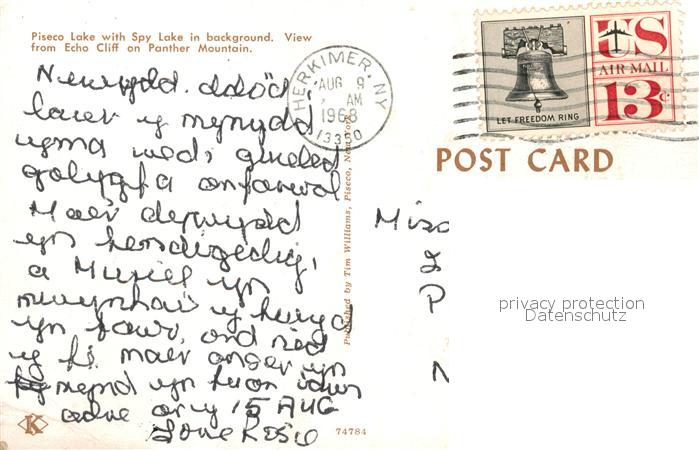 Piseco Lake with Spy Lake in background. View
from Echo Cliff on Panther Mountain.
Newydd ddod i
lawr y mynydd
yma wedi gweled
golygfa anfarwol
Mae'r dywydd
yn hendigedig,
a Muriel yn
mwynhau y hwyl
yn fawr, ond
y mae'r amser yn
mynd yn
adre ar y 15 AUG
Love Rosie
Published by Tim Williams, Piseco, New York
K
74784
HERKIMER, NY
AUG 9
AM
1968
13350
LET FREEDOM RING
US
AIR MAIL
13c
POST CARD
privacy protection
Datenschutz